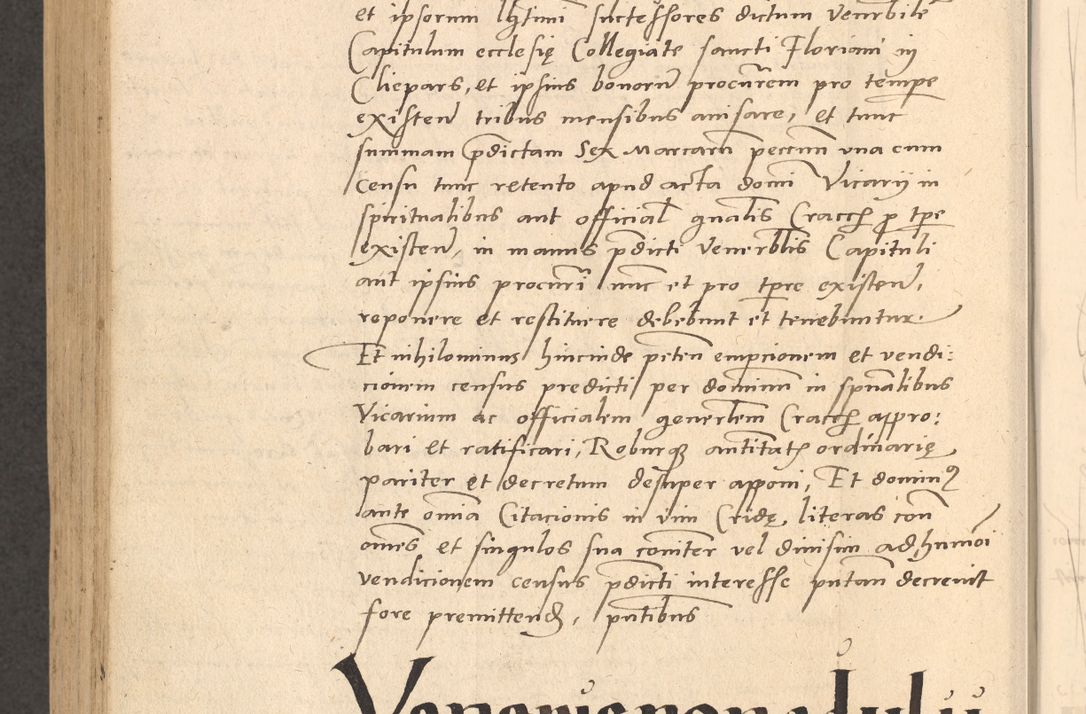 et ipsorum lgtimi suctessores dictum venerbile
Capitulum ecclesię Collegiate sancti Floriani in
Cliepars, et ipsius bonorum procurem pro tempe
existen tribus mensibus auisare, et tunc
summam pdictam Sex Marcarum peccun vna cum
Censu tunc retento apud acta domi Vicarij in
spiritualibus aut official gnalis Craco p tpe
existen, in manus pdicti Venerblis Capituli
aut ipsius procuri nunc et pro tpre existen,
reponere et restituere debebunt et tenebuntur.
Et nihilominus hincinde peten empcionem et vendi:
cionem census predicti per dominum in spualibus
Vicarium ac officialem generlem Craco appro:
bari et ratificari, Roburq antitat ordinarię
pariter et decretum desuper apponi, Et dominus
ante omnia Citacionis in vim Cridę, literas con
omes et singulos sua comiter vel diuisim ad humoi
vendicionem census pdicti interesse putan decreuit
fore premittend, pntibus